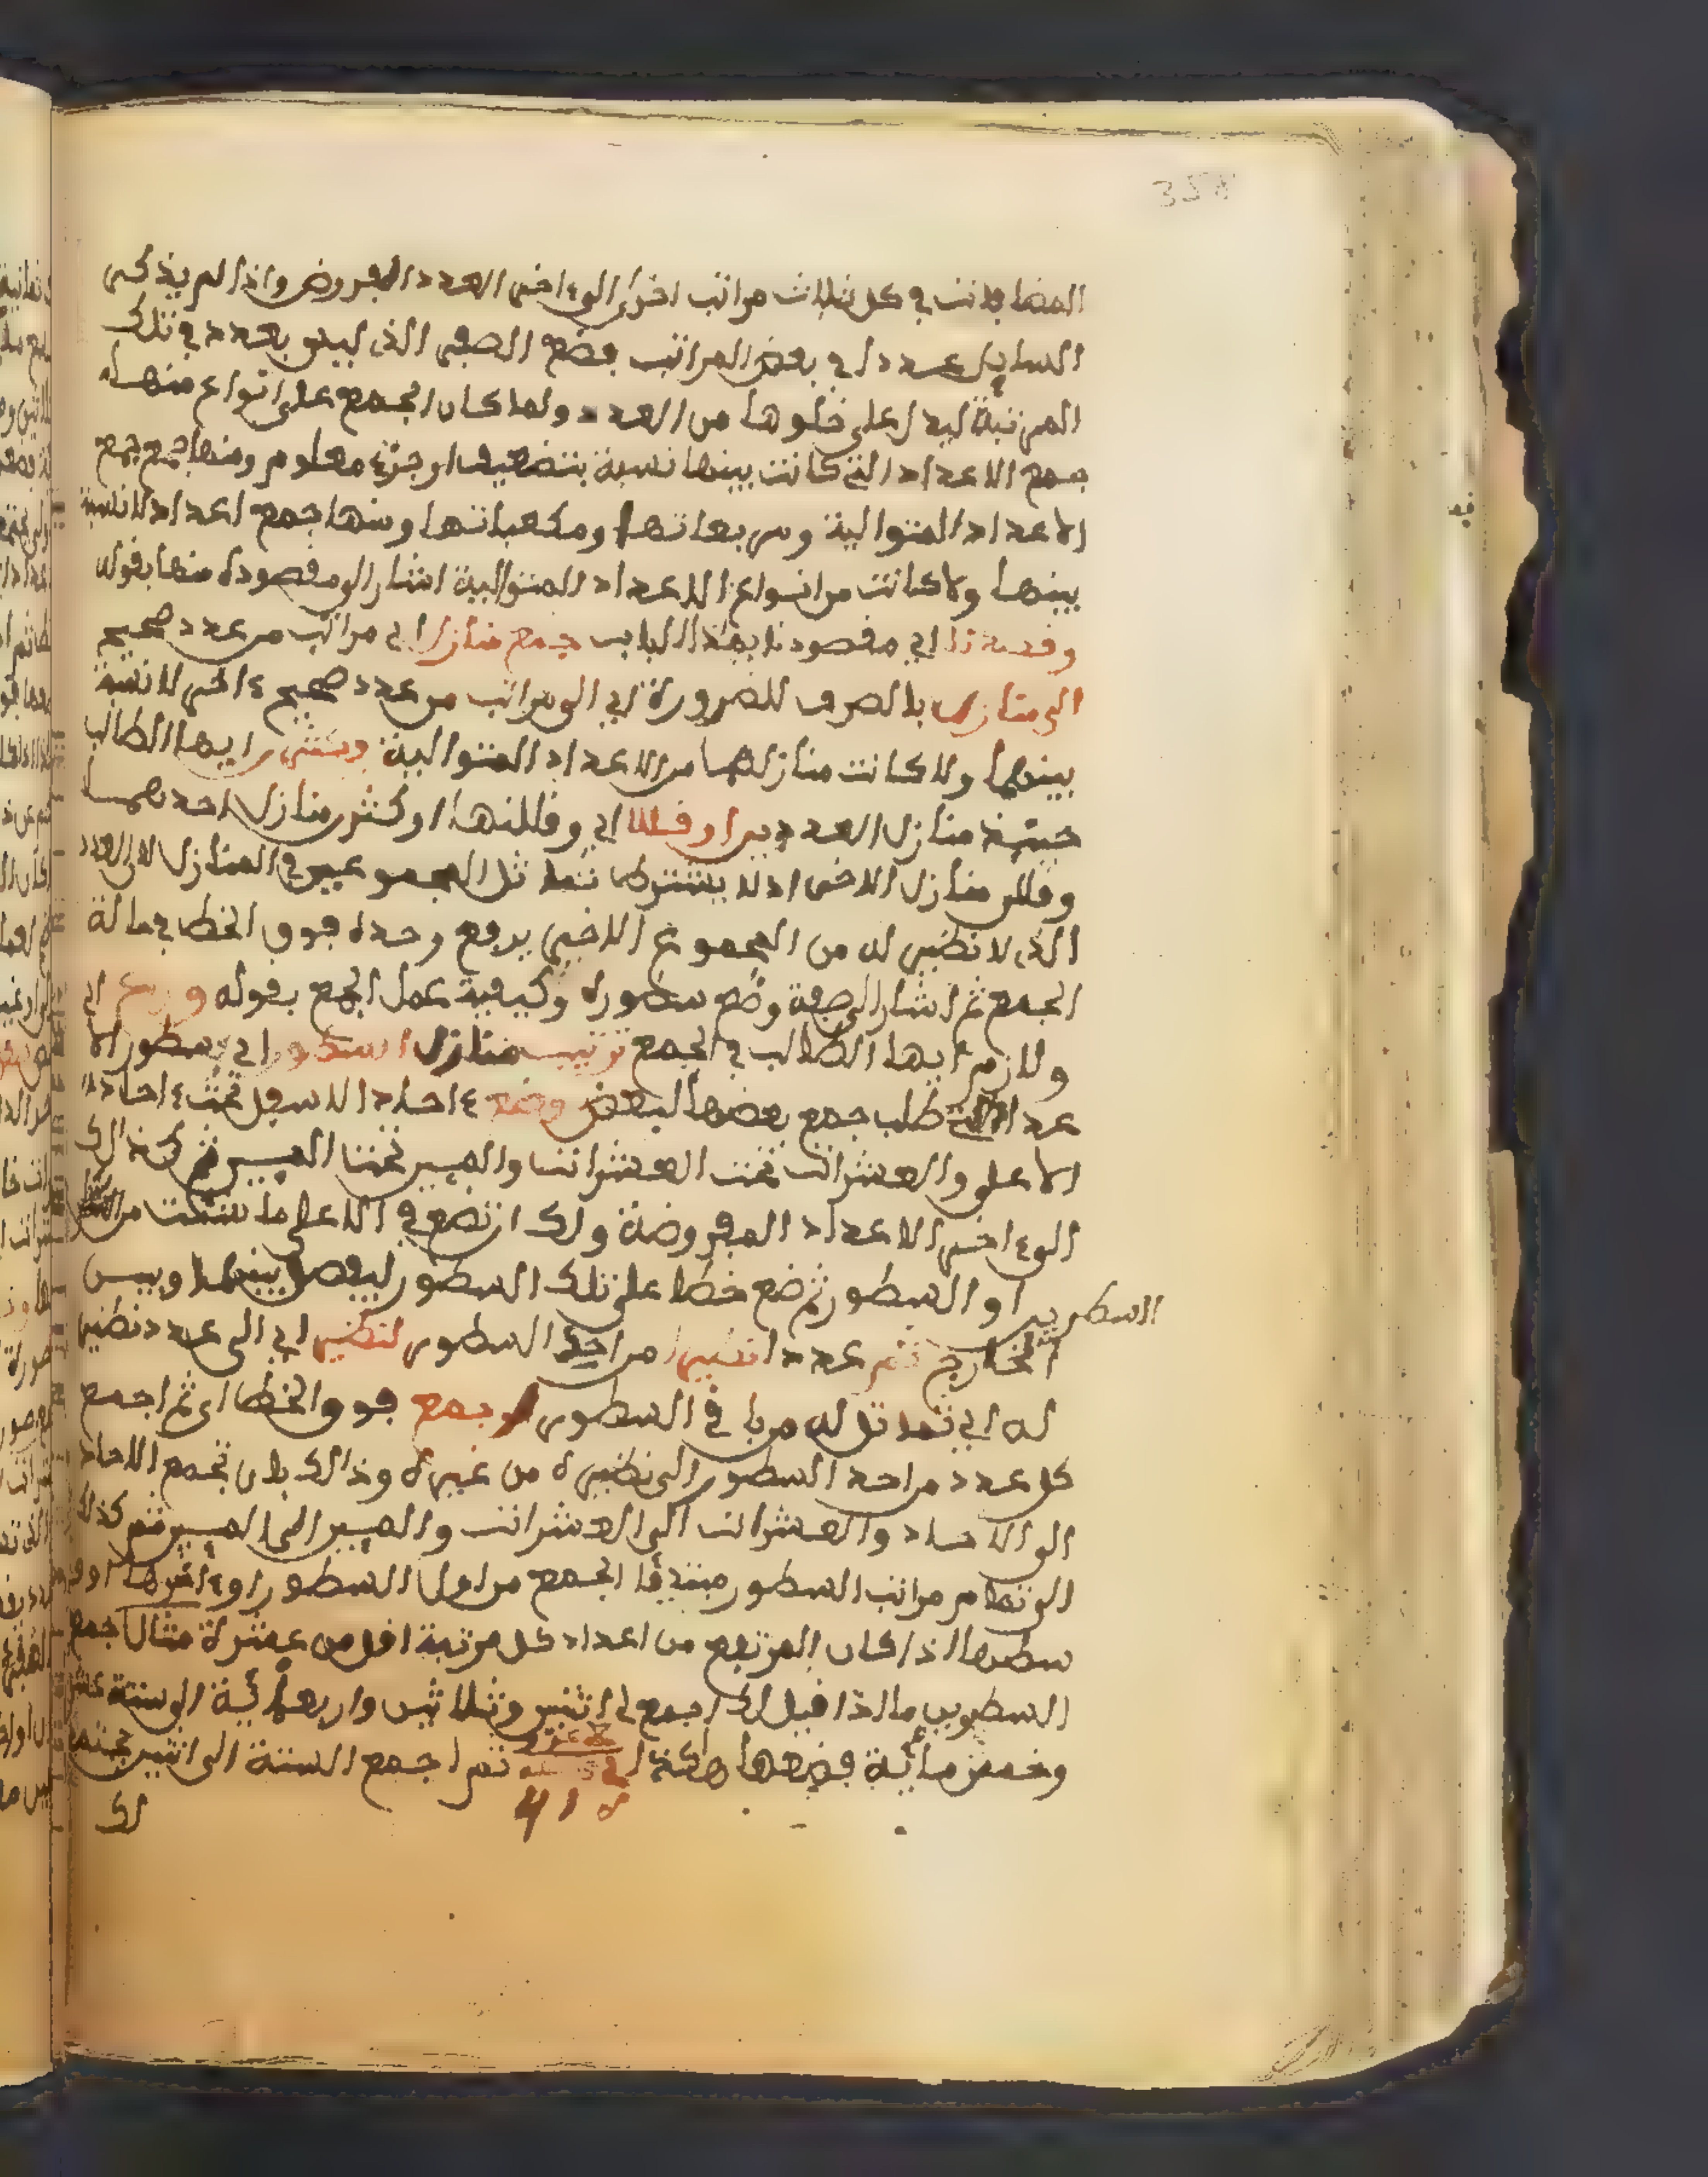 358
المضافات في كل ثلاث مراتب اخرا الى اخر العدد المفروض واذا لم يذكر
السايل عددا في بعض المراتب فضع الصفر الذي ليس بعدد في تلك
المرتبة ليدل على خلوها من العدد ولما كان الجمع على انواع منها
جمع الاعداد التي كانت بينها نسبة بتضعيف او جزء معلوم ومنها جمع
الاعداد المتوالية ومربعاتها ومكعباتها ومنها جمع اعداد لا نسبة
بينها ولا كانت من انواع الاعداد المتوالية اشار الى مقصوده منها بقوله
وقصدنا اي مقصودنا بهذا الباب جمع منازل اي مراتب من عدد صحيح
الى منازل بالصرف للضرورة اي الى مراتب من عدد صحيح ءاخر لا نسبة
بينهما ولا كانت منازلهما من الاعداد المتوالية وكثر ايها الطالب
حينئذ منازل العددين او قللا اي وقللنها او كثر منازل احدهما
وقلل منازل الاخر اذ لا يشترط تماثل المجموعين في المنازل لان العدد
الذي لا نظير له من المجموع الاخير يرفع وحده فوق الخط في حالة
الجمع ثم اشار الى صفة وضع سطوره وكيفية عمل الجمع بقوله اي
ولازم ايها الطالب في الجمع ترتيب منازل السطور اي سطور الا
عداد التي طلب جمع بعضها لبعض وضع ءاحاد الاسفل تحت ءاحاد
الاعلى والعشرات تحت العشرات والميين تحت الميين ثم كذلك
الى ءاخر الاعداد المفروضة ولك ان تضع في الاعلى ما شئت من
السطرين او السطور ثم ضع خطا على تلك السطور ليفصل بينها وبين
الخارج ثم عددا انظر من احد السطور لنظير اي الى عدد نظير
له اي تماثل له مربا في السطور وجمع فوق الخط اي ثم اجمع
كل عدد من احد السطور الى نظيره من غيره وذالك بان تجمع الاحاد
الى الاحاد والعشرات الى العشرات والميين الى الميين ثم كذلك
الى تمام مراتب السطور مبتدئا الجمع من اول السطور او ءاخرها او
سطرها اذا كان المرتفع من اعداد كل مرتبة اقل من عشرة مثال جمع
السطرين ما اذا قيل لك اجمع لي اثنين وثلاثين واربعمائة الى ستة عشر
وخمس مائة فضعها هاكذا ثم اجمع الستة الى اثنين
لك